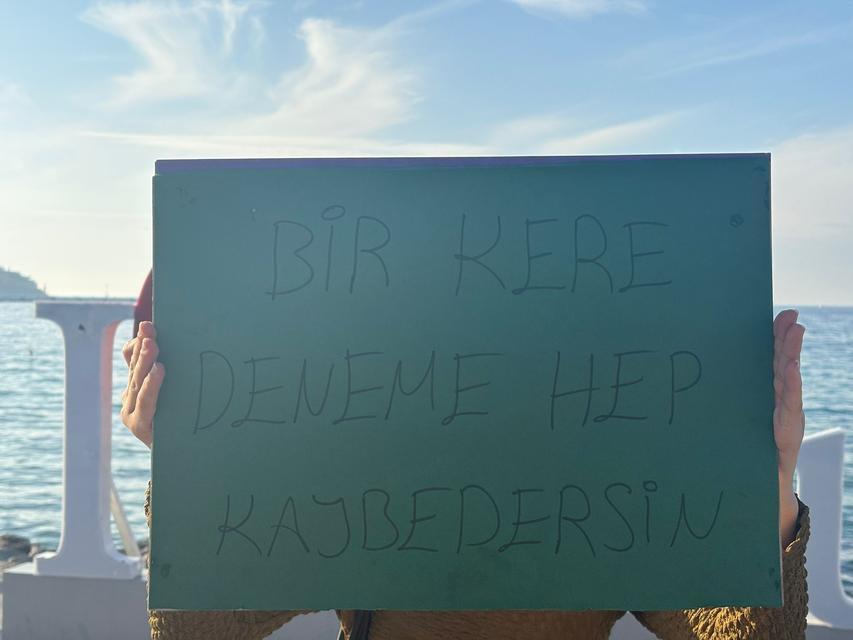 BİR KERE
DENEME HEP
KAYBEDERSİN